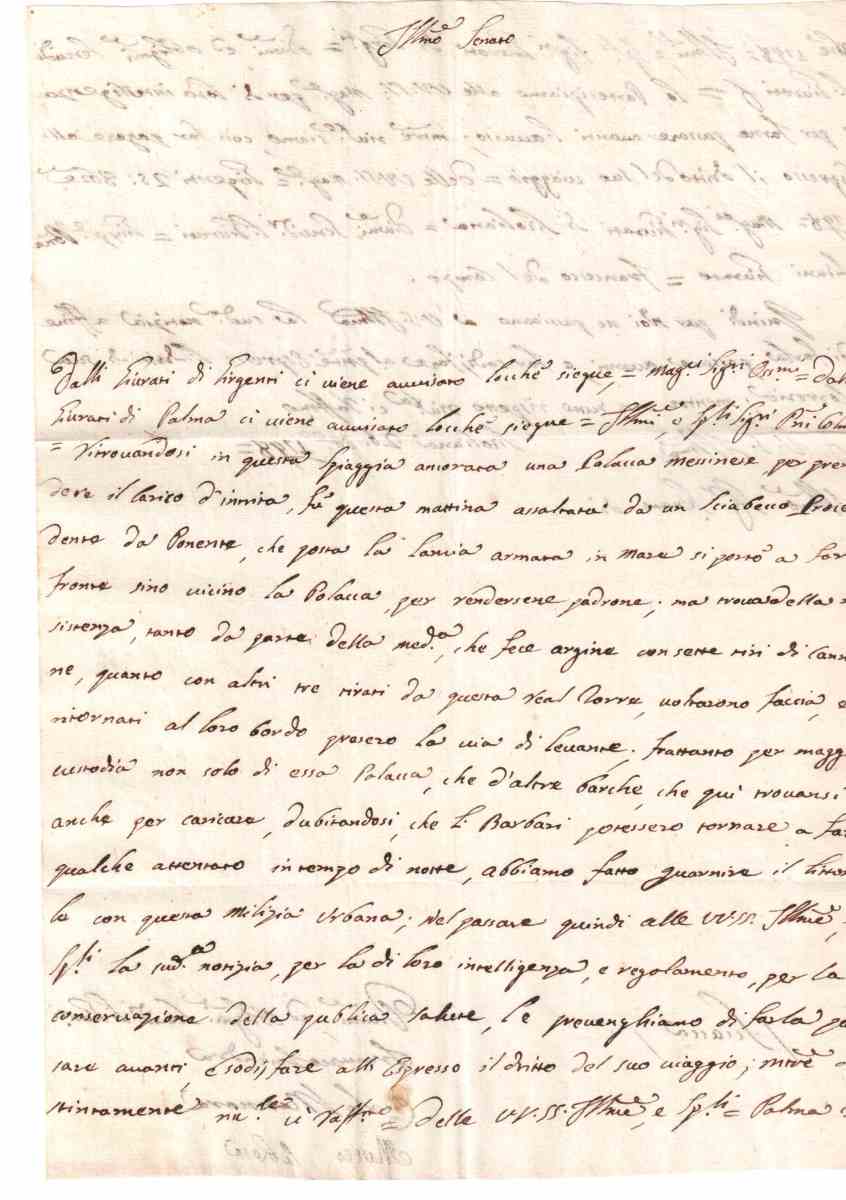 Ill.mo Senato
Dalli Giurati di Girgenti ci viene avvisato locchè siegue = Mag.ci Sig.ri Oss.mi = Dalli
Giurati di Palma ci viene avvisato locchè siegue = Ill.mi, e Sp.li Sig.ri P.ni
= Ritrovandosi in questa spiaggia ancorata una Polacca messinese, per pren
dere il carico d'innita, fù questa mattina assaltata da un Sciabecco Proce
dente da Ponente, che posta la lancia armata in mare si portò a far
fronte sino vicino la Polacca, per rendersene padrone; ma trovadella re
sistenza, tanto da parte della med.a, che fece argine con sette tiri di canno
ne, quanto con altri tre tirati da questa real Torre, voltarono faccia, e
ritornati al loro bordo presero la via di levante; frattanto per magg
custodia non solo di essa Polacca, che d'altre barche, che quì trovansi
anche per caricare, dubitandosi, che l. Barbari potessero tornare a fa
qualche attentato in tempo di notte, abbiamo fatto guarnire il litto
le con questa Milizia Urbana; Nel passare quindi alle VV. SS. Ill.me,
Sp.li la sud.a notizia, per la di loro intelligenza, e regolamento, per la
conservazione della publica salute, le prevenghiamo di farla pa
sare avanti, e sodisfare alli Espresso il dritto del suo viaggio; mentre
stintamente ci raff.mo = delle VV. SS. Ill.me, e Sp.li = Palma